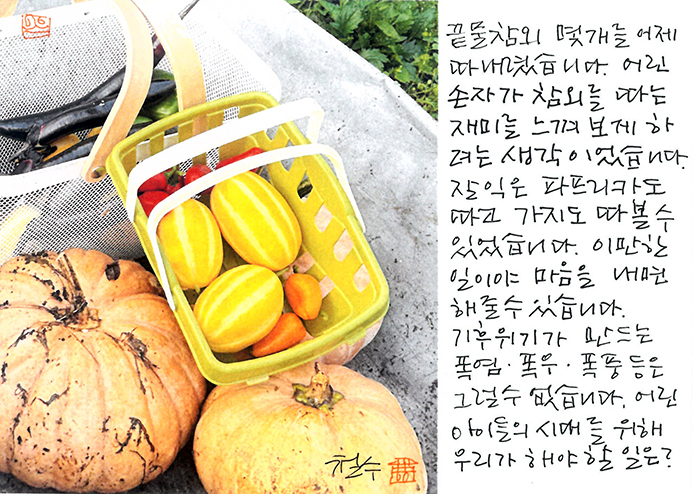 끝물참외 몇개를 어제
따내렸습니다. 어린
손자가 참외를 따는
재미를 느껴보게 하
려는 생각이었습니다.
잘익은 파프리카도
따고 가지도 따볼 수
있었습니다. 이만한
일이야 마음을 내면
해줄수 있습니다.
기후위기가 만드는
폭염·폭우·폭풍등은
그럴수 없습니다. 어린
아이들의 시대를 위해
우리가 해야할 일은?
철수